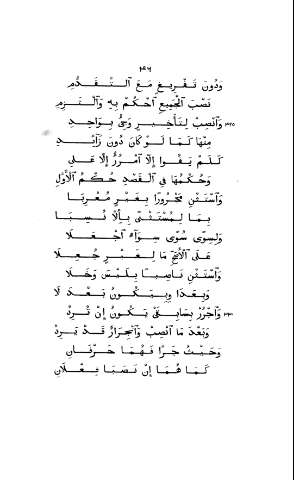 ١٤٦
وَدُونَ تَفْرِيغٍ مَعَ التَّقَدُّمِ
نَصْبَ الْجَمِيعِ احْكُمْ بِهِ وَالْتَزِمِ
وَانْصِبْ لِتَأْخِيرٍ وَجِئْ بِوَاحِدِ ٣٢٥
مِنْهَا كَمَا لَوْ كَانَ دُونَ زَائِدِ
كَلَمْ يَفُوا إِلَّا امْرُؤٌ إِلَّا عَلِي
وَحُكْمُهَا فِي الْقَصْدِ حُكْمُ الْأَوَّلِ
وَاسْتَثْنِ مَجْرُورًا بِغَيْرٍ مُعْرَبَا
بِمَا لِمُسْتَثْنًى بِإِلَّا نُسِبَا
وَلِسِوًى سُوًى سِوَاءٍ اجْعَلَا
عَلَى الْأَصَحِّ مَا لِغَيْرٍ جُعِلَا
وَاسْتَثْنِ نَاصِبًا بِلَيْسَ وَخَلَا
وَبِعَدَا وَبِيَكُونُ بَعْدَ لَا
وَاجْرُرْ بِسَابِقَيْ يَكُونُ إِنْ تُرِدْ ٣٣٠
وَبَعْدَ مَا انْصِبْ وَانْجِرَارٌ قَدْ يَرِدْ
وَحَيْثُ جَرَّا فَهُمَا حَرْفَانِ
كَمَا هُمَا إِنْ نَصَبَا فِعْلَانِ